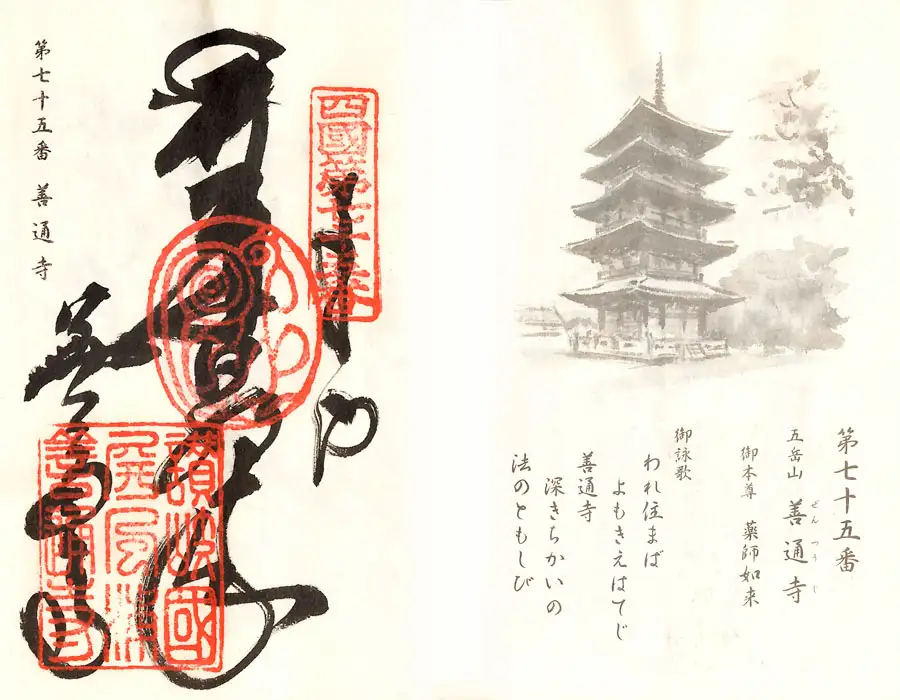 第七十五番
五岳山 善通寺
ぜんつうじ
御本尊 薬師如来
御詠歌
われ住まば
よもきえはてじ
善通寺
深きちかいの
法のともしび
四國第七十五番
讃岐國
屏風浦
善通寺
第七十五番 善通寺